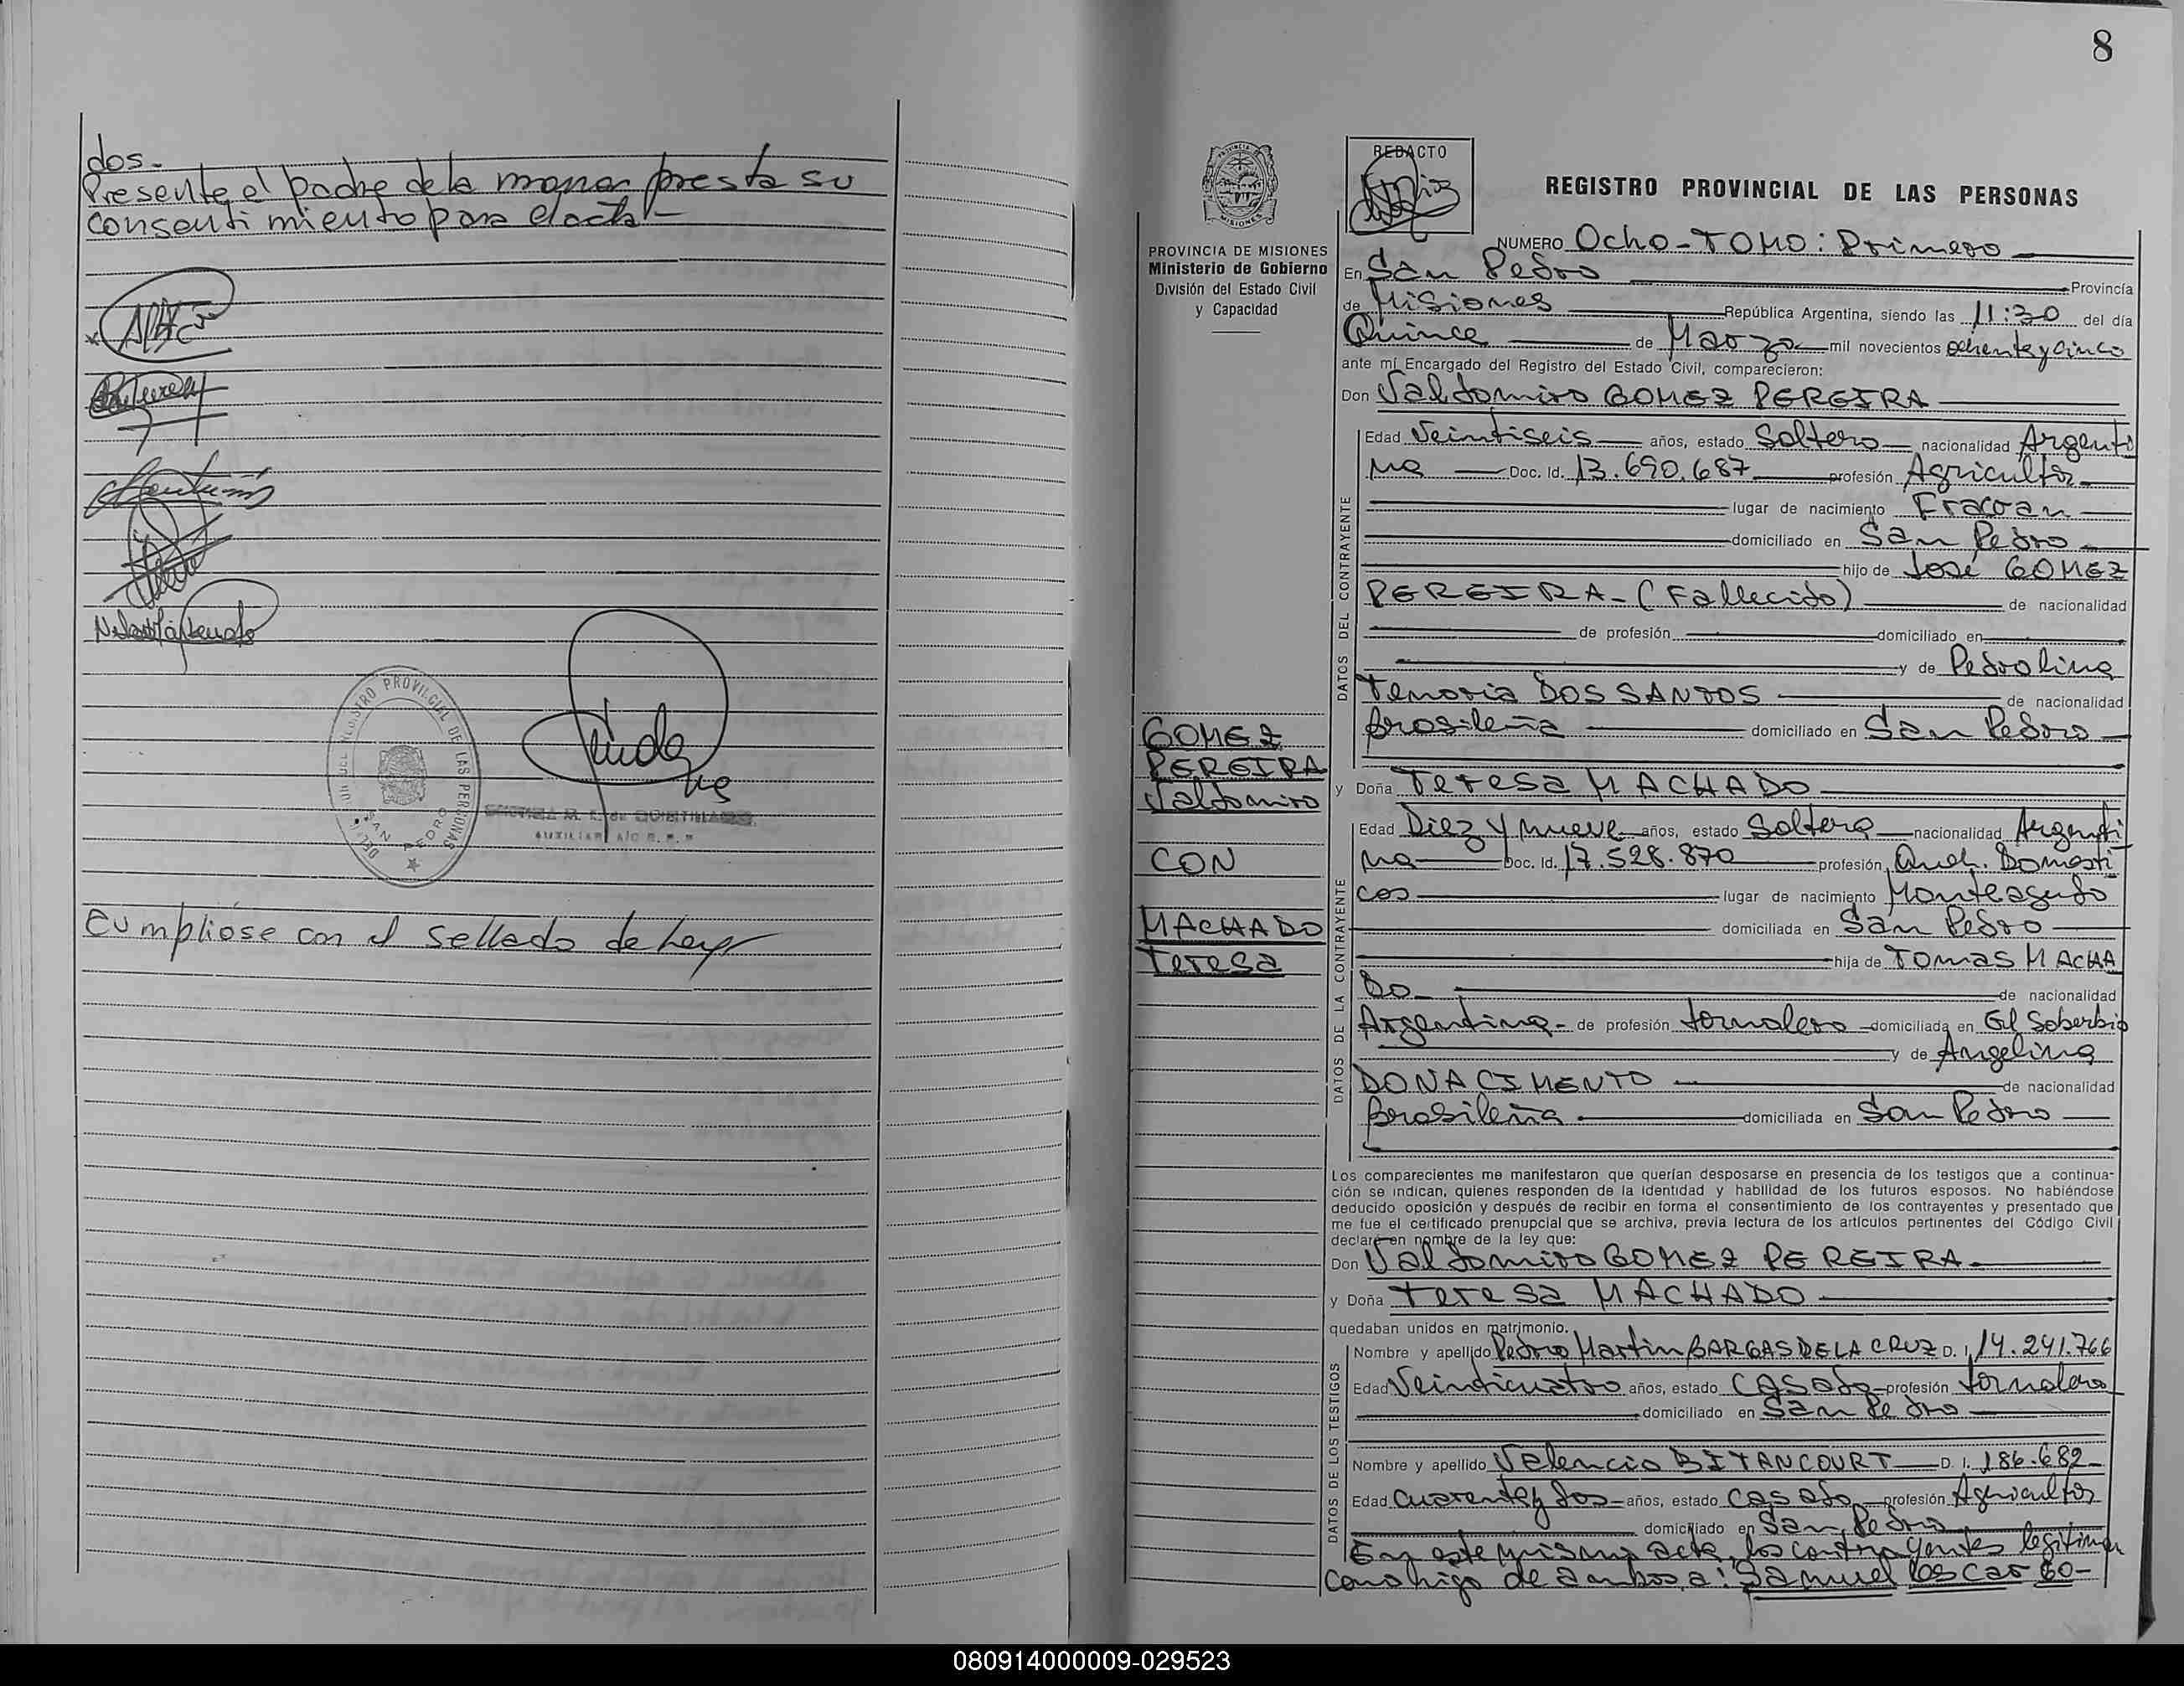 8
dos.-
Presente el padre de la menor presta su
consentimiento para el acto.-
REGISTRO PROVINCIAL DE LAS PERSONAS
SAN PEDRO
AUXILIAR A/C
Cumpliose con el sellado de Ley
PROVINCIA DE MISIONES
Ministerio de Gobierno
División del Estado Civil
y Capacidad
GOMEZ
PEREIRA
Valdomiro
CON
MACHADO
Teresa
REDACTO
REGISTRO PROVINCIAL DE LAS PERSONAS
NUMERO Ocho - TOMO: Primero
En San Pedro Provincia
de Misiones República Argentina, siendo las 11:30 del día
Quince de Marzo mil novecientos ochenta y cinco
ante mí Encargado del Registro del Estado Civil, comparecieron:
Don Valdomiro GOMEZ PEREIRA
DATOS DEL CONTRAYENTE
Edad Veintiseis años, estado Soltero nacionalidad Argenti
na Doc. Id. 13.690.687 profesión Agricultor
lugar de nacimiento Fracran
domiciliado en San Pedro
hijo de José GOMEZ
PEREIRA - (Fallecido) de nacionalidad
de profesión domiciliado en
y de Pedrolina
Temoria DOS SANTOS de nacionalidad
Brasileña domiciliado en San Pedro
y Doña Teresa MACHADO
DATOS DE LA CONTRAYENTE
Edad Diez y nueve años, estado Soltera nacionalidad Argenti
na Doc. Id. 17.528.870 profesión Queh. Domesti
cos lugar de nacimiento Monteagudo
domiciliada en San Pedro
hija de Tomas MACHA
DO de nacionalidad
Argentina - de profesión Jornalero domiciliada en El Soberbio
y de Angelina
DONACIMENTO de nacionalidad
Brasileña domiciliada en San Pedro
Los comparecientes me manifestaron que querían desposarse en presencia de los testigos que a continua-
ción se indican, quienes responden de la identidad y habilidad de los futuros esposos. No habiéndose
deducido oposición y después de recibir en forma el consentimiento de los contrayentes y presentado que
me fue el certificado prenupcial que se archiva, previa lectura de los artículos pertinentes del Código Civil
declaré en nombre de la ley que:
Don Valdomiro GOMEZ PEREIRA
y Doña Teresa MACHADO
quedaban unidos en matrimonio.
DATOS DE LOS TESTIGOS
Nombre y apellido Pedro Martin BARGAS DE LA CRUZ D. I. 14.241.766
Edad Veinticuatro años, estado casado profesión Jornalero
domiciliado en San Pedro
Nombre y apellido Valencio BITANCOURT D. I. 186.682
Edad Cuarenta y dos años, estado casado profesión Agricultor
domiciliado en San Pedro
En este mismo acto, los contrayentes legitiman
como hijo de ambos a: Samuel Oscar GO-
080914000009-029523